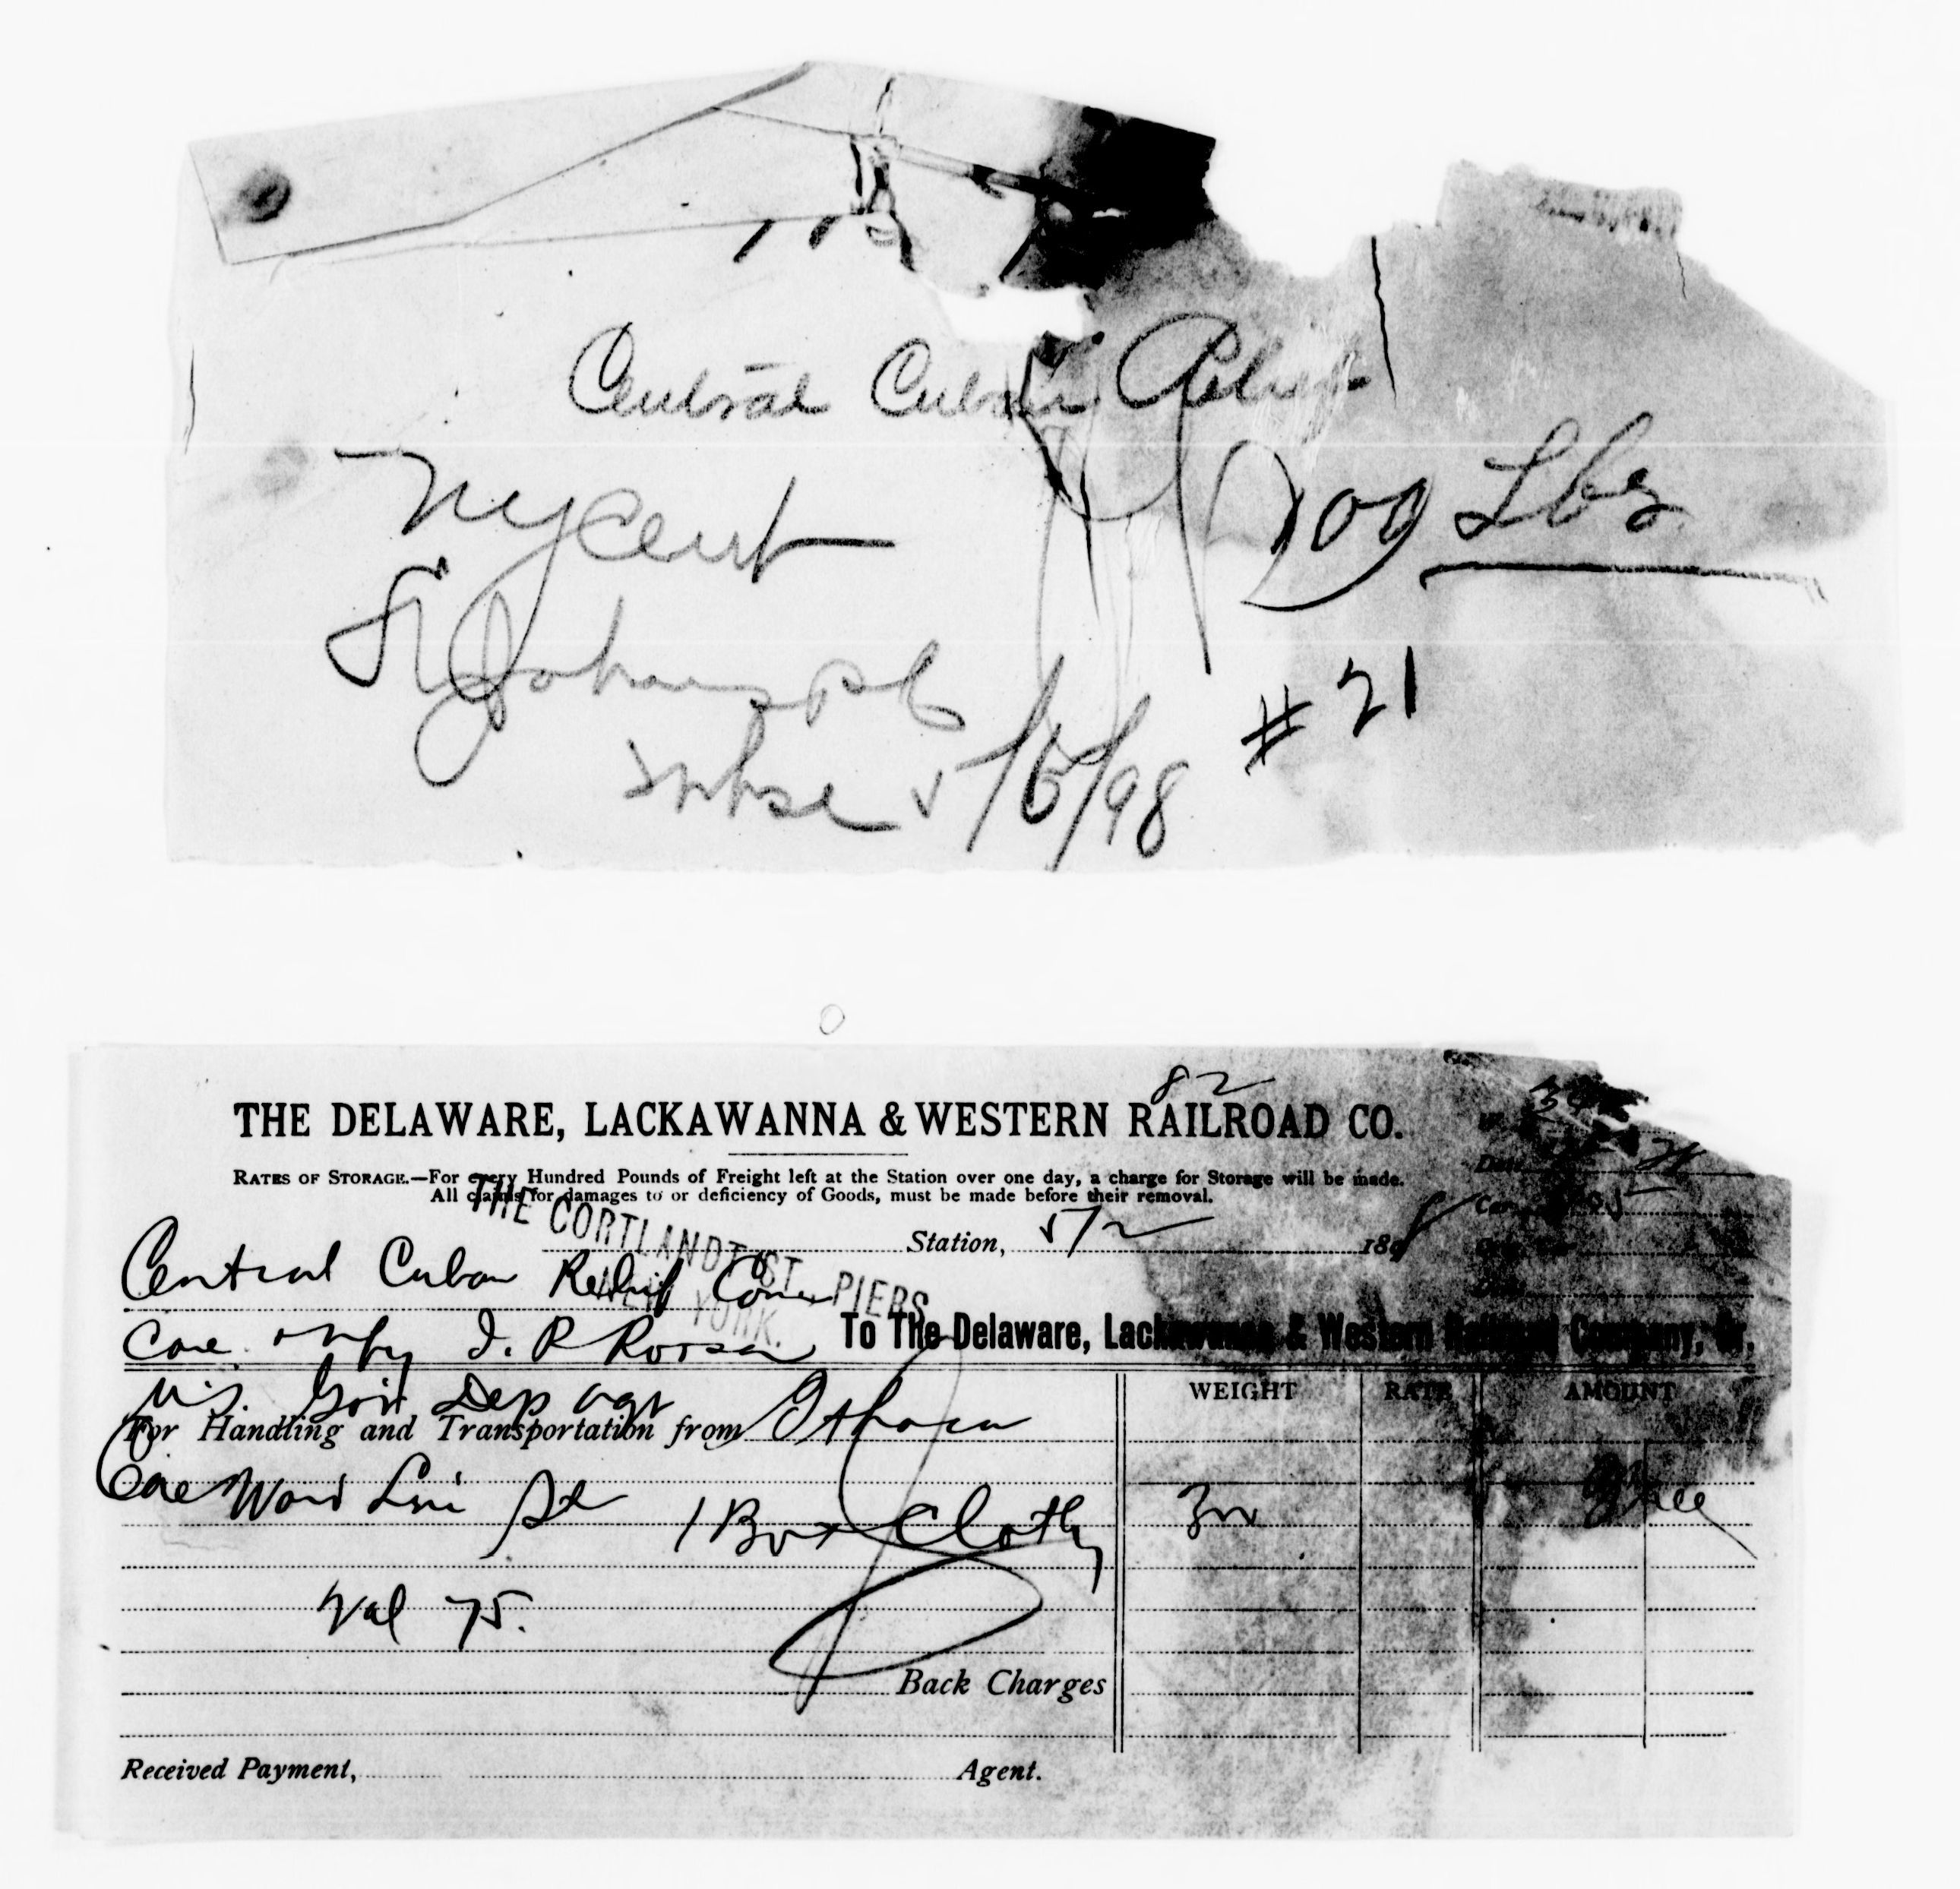 Central Cuban Relief
NYCent
100 Lbs
St Johns
# 21
5/5/98
82
THE DELAWARE, LACKAWANNA & WESTERN RAILROAD CO.
RATES OF STORAGE.—For every Hundred Pounds of Freight left at the Station over one day, a charge for Storage will be made.
All claims for damages to or deficiency of Goods, must be made before their removal.
Date
Car
THE CORTLANDT ST. PIERS
NEW YORK.
Station, 5/2 1898
Central Cuban Relief Com
To The Delaware, Lackawanna & Western Railroad Company, Dr.
Care
Dep Agt
WEIGHT RATE AMOUNT
For Handling and Transportation from Ithaca
Care Ward Line
1 Box Clothg
Val 75.
Back Charges
Received Payment, Agent.